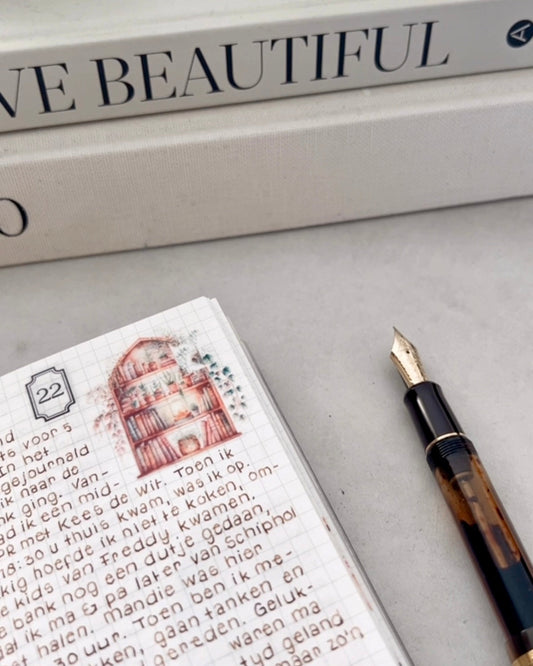 VE BEAUTIFUL
A
O
22
nd
5 voor 5
In het
gejournald
ik naar de
nk ging. Van-
ad ik een mid-
or met Kees de Wit. Toen ik
:30 u thuis kwam, was ik op.
kig hoefde ik niet te koken, om-
e kids van Freddy kwamen.
bank nog een dutje gedaan,
dat ik ma & pa later van Schiphol
st halen. Mandie was hier
30 uur. Toen ben ik me-
kken, gaan tanken en
gereden. Geluk-
waren ma
tyd geland
maar zo'n